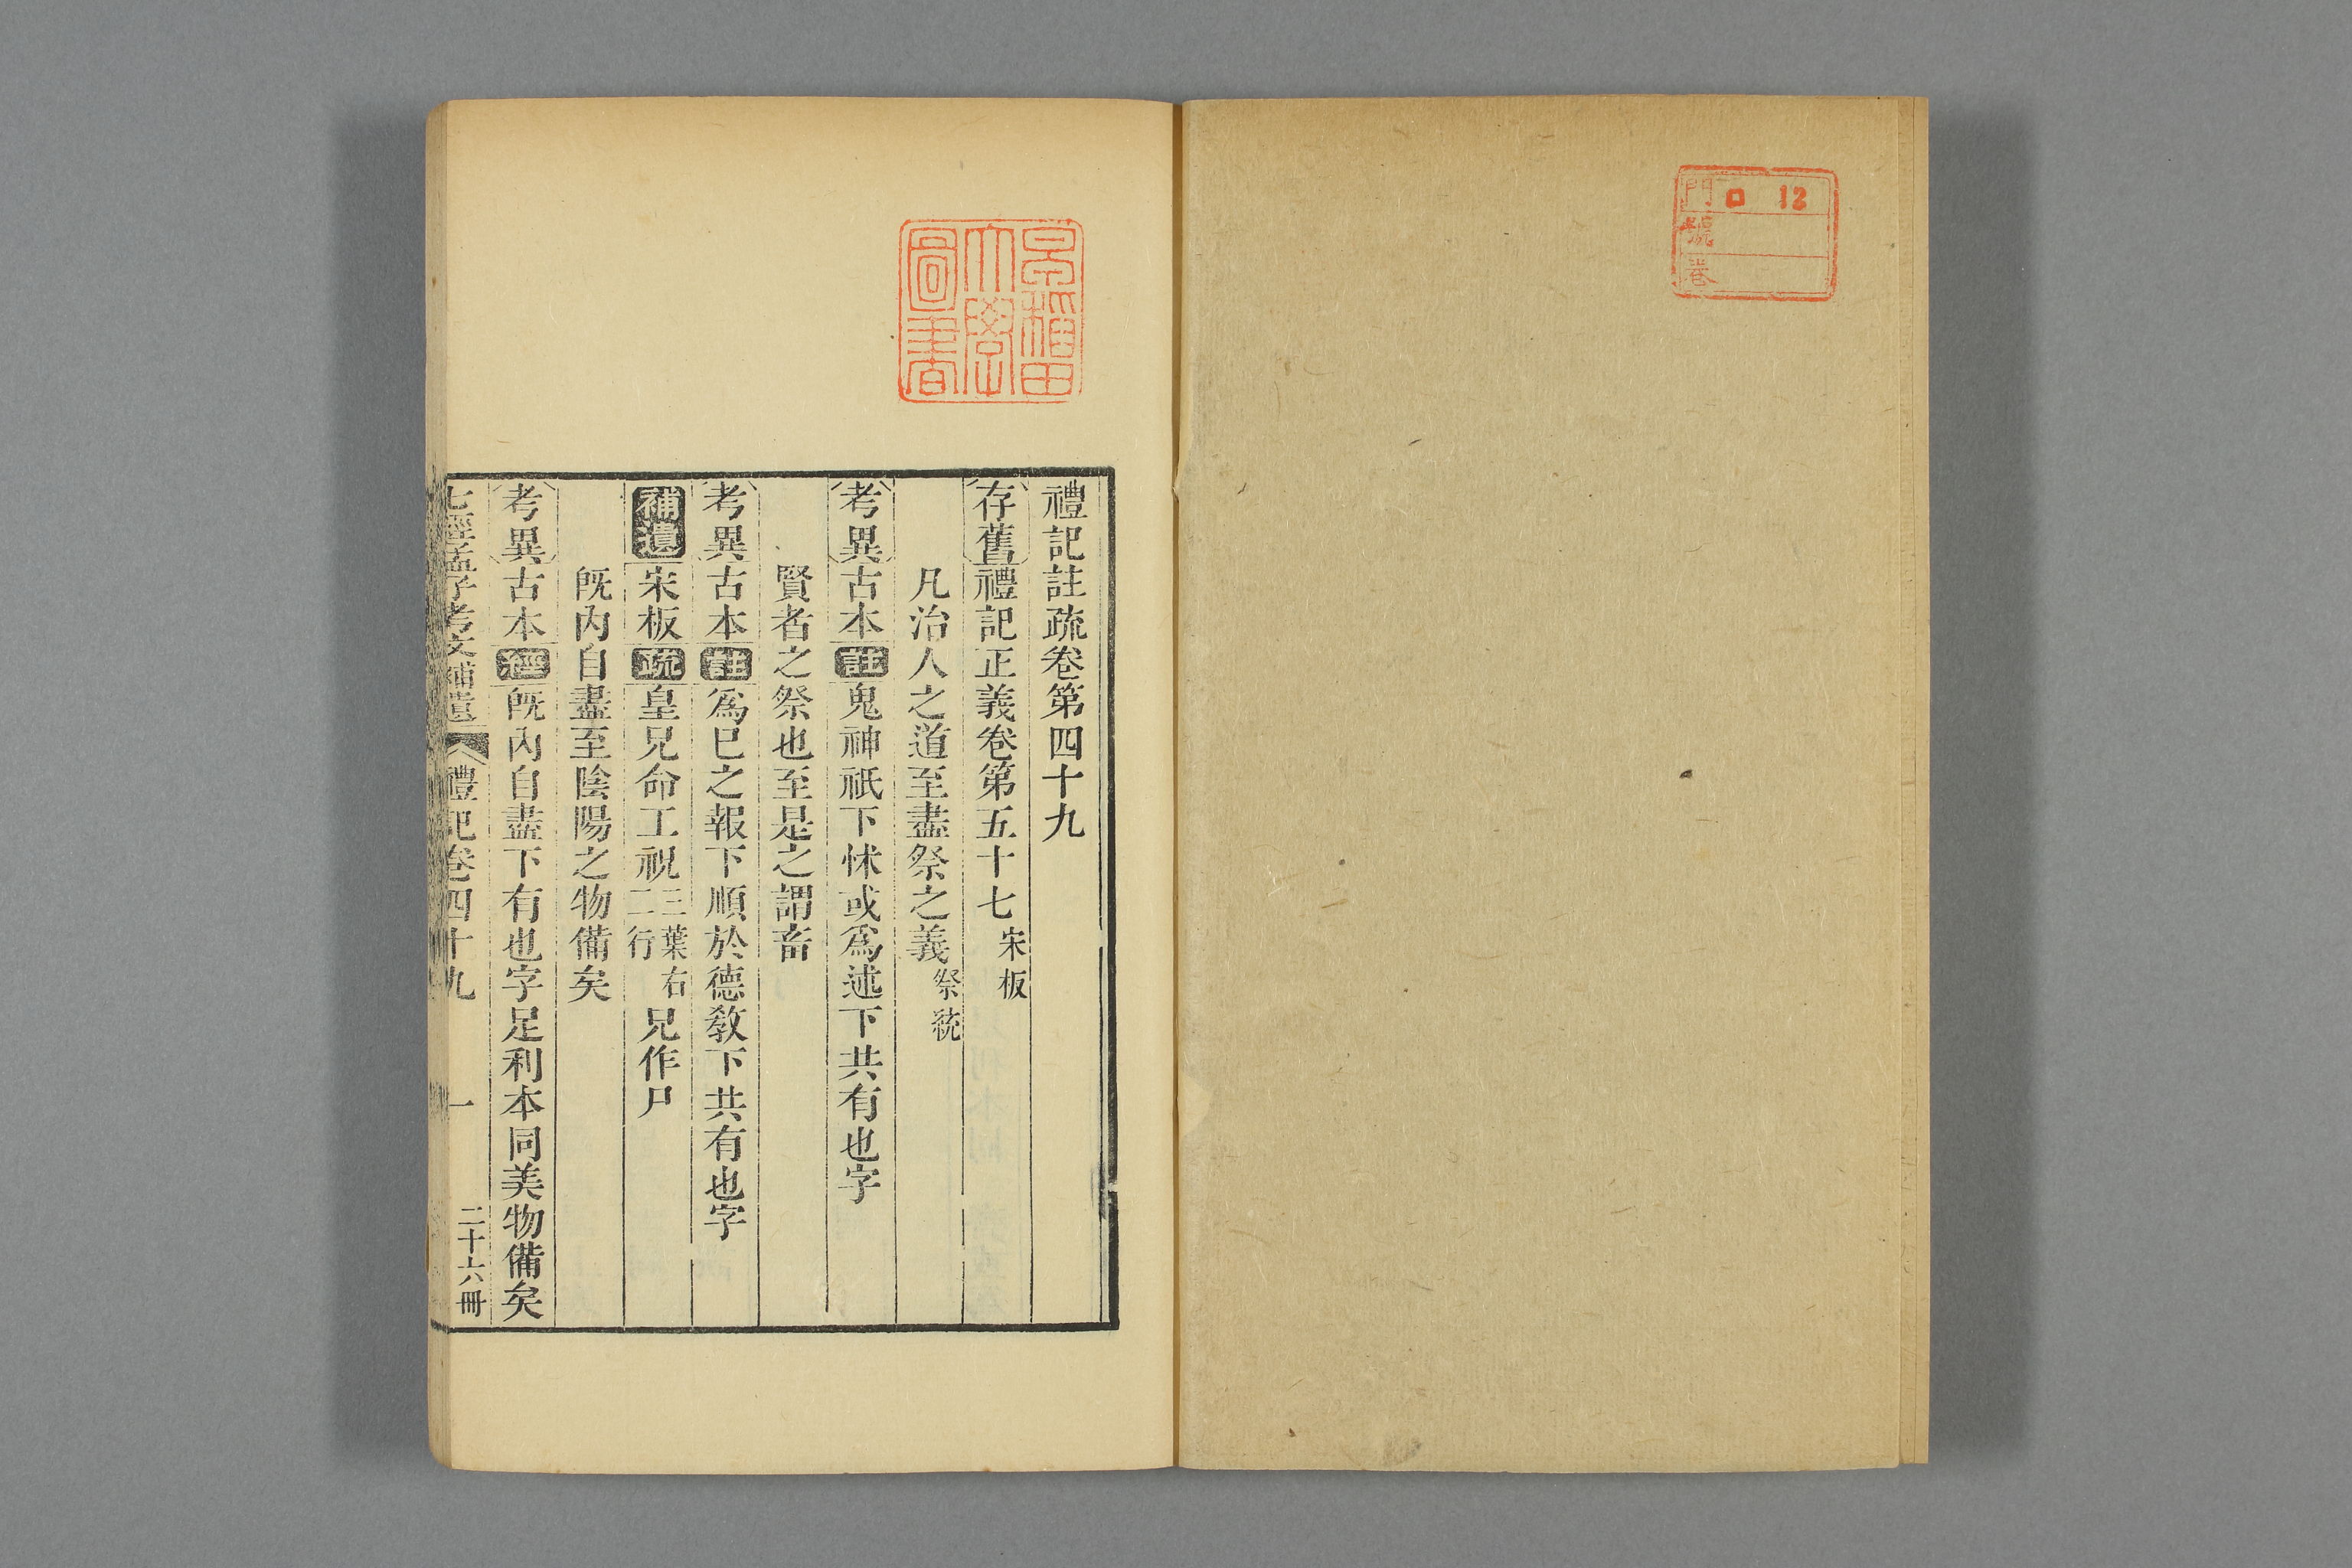 門 ロ 12
號
卷
早稲田
大學
圖書
禮記註疏卷第四十九
存舊禮記正義卷第五十七宋板
凡治人之道至盡祭之義祭統
考異古本註鬼神祇下怵或爲述下共有也字
賢者之祭也至是之謂畜
考異古本註爲巳之報下順於德敎下共有也字
補遺宋板疏皇兄命工祝三葉右二行兄作尸
旣內自盡至陰陽之物備矣
考異古本經旣內自盡下有也字足利本同美物備矣
七經孟子考文補遺 禮記卷四十九 一 二十六冊